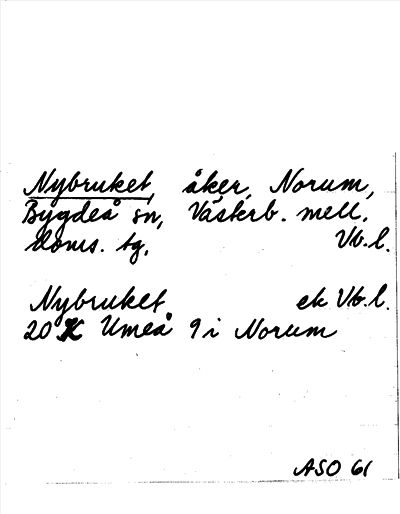 Nybruket, åker, Norum,
Bygdeå sn, Västerb. mell.
doms. tg. Vb.l.
Nybruket ek Vb.l.
20 K Umeå 9 i Norum
ASO 61